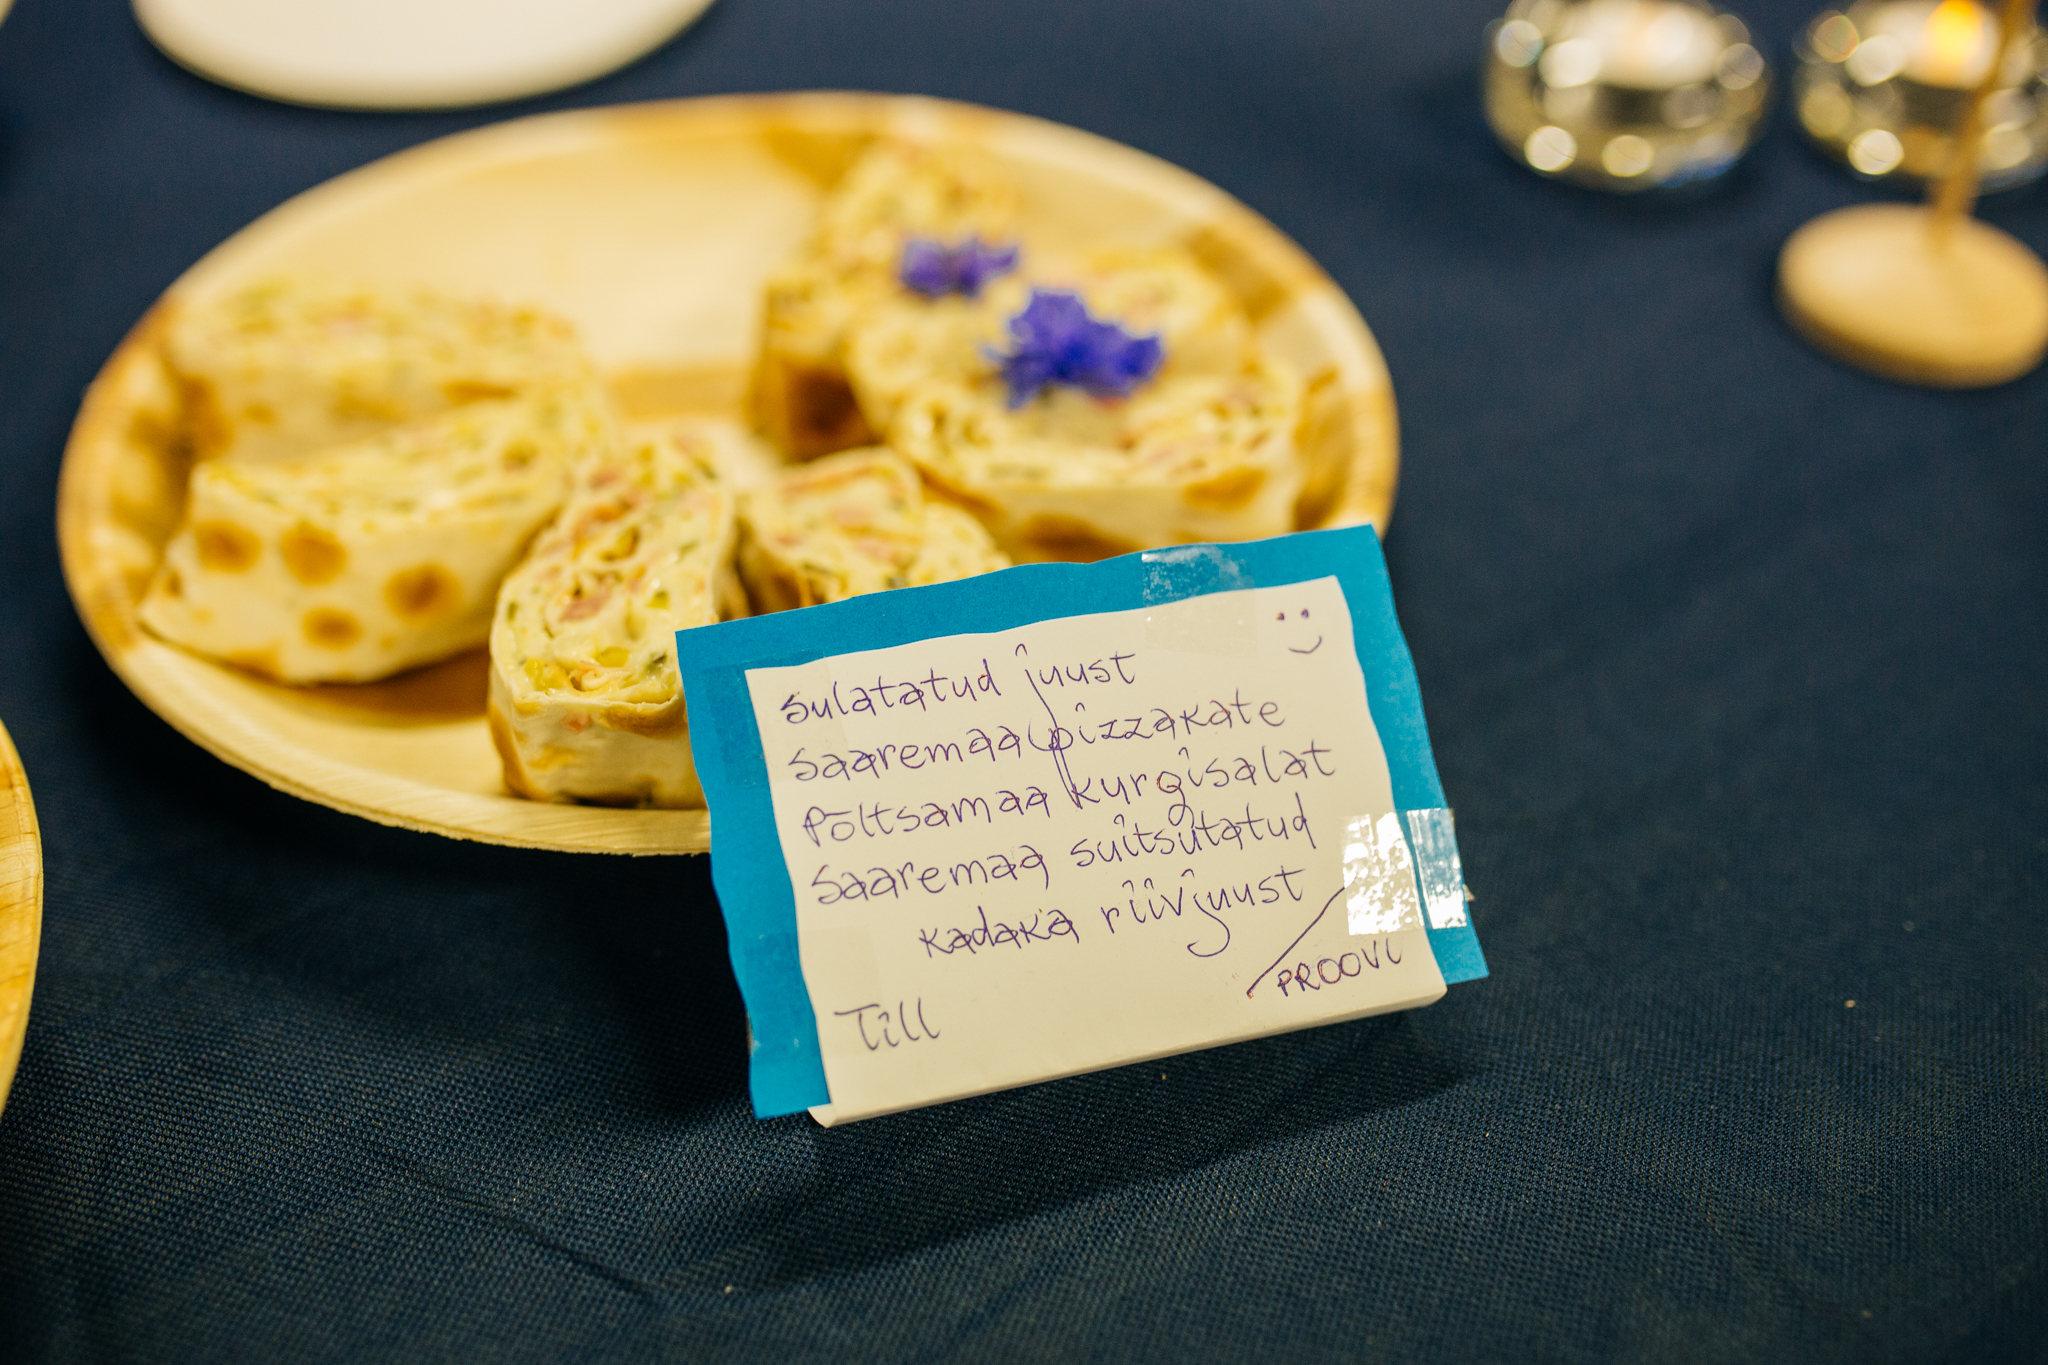 sulatatud juust
saaremaa pizzakate
Põltsamaa kurgisalat
saaremaa suitsutatud
kadaka riivjuust
PROOVI
Till